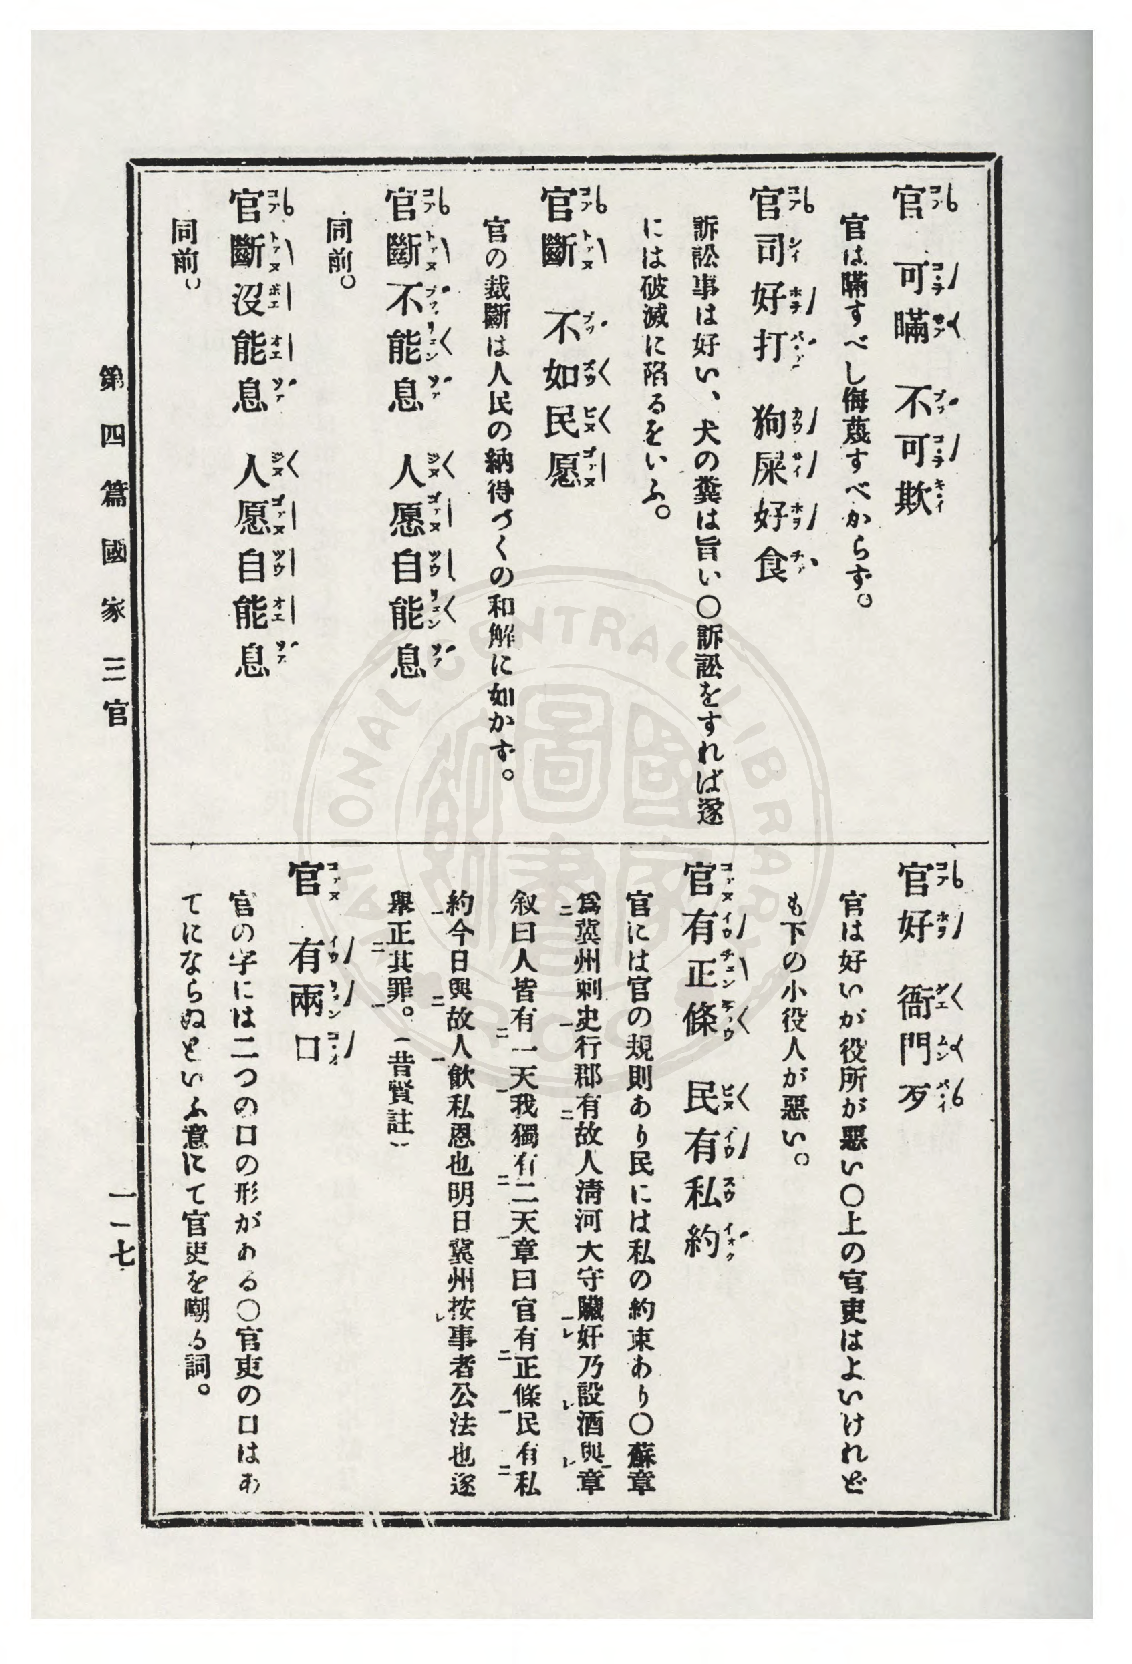 官 可瞞 不可欺
官は瞞すべし侮蔑すべからず。
官司好打 狗屎好食
訴訟事は好い、犬の糞は旨い〇訴訟をすれば遂
には破滅に陷るをいふ。
官斷 不如民愿
官の裁斷は人民の納得づくの和解に如かず。
官斷不能息 人愿自能息
同前。
官斷沒能息 人愿自能息
同前。
官好 衙門歹
官は好いが役所が惡い〇上の官吏はよいけれど
も下の小役人が惡い。
官有正條 民有私約
官には官の規則あり民には私の約束あり〇蘇章
爲冀州刺史行郡有故人淸河大守贓奸乃設酒與章
叙曰人皆有一天我獨有二天章曰官有正條民有私
約今日與故人飮私恩也明日冀州按事者公法也遂
擧正其罪。(昔賢註)
官 有兩口
官の字には二つの口の形がある〇官吏の口はあ
てにならぬといふ意にて官吏を嘲る詞。
第四篇國家 三官
一一七
NATIONAL CENTRAL LIBRARY
國家圖書館